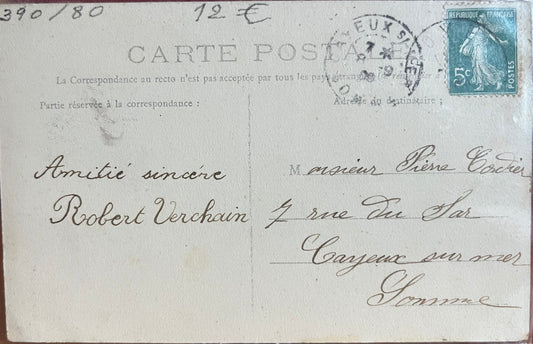 390/80 12 €
CARTE POSTALE
La Correspondance au recto n'est pas acceptée par tous les pays étrangers
Partie réservée à la correspondance :
Adresse du destinataire :
RÉPUBLIQUE FRANÇAISE
5c
POSTES
Amitié sincére
Robert Verchain
Monsieur Pierre Cordier
7 rue du Sar
Cayeux sur mer
Somme